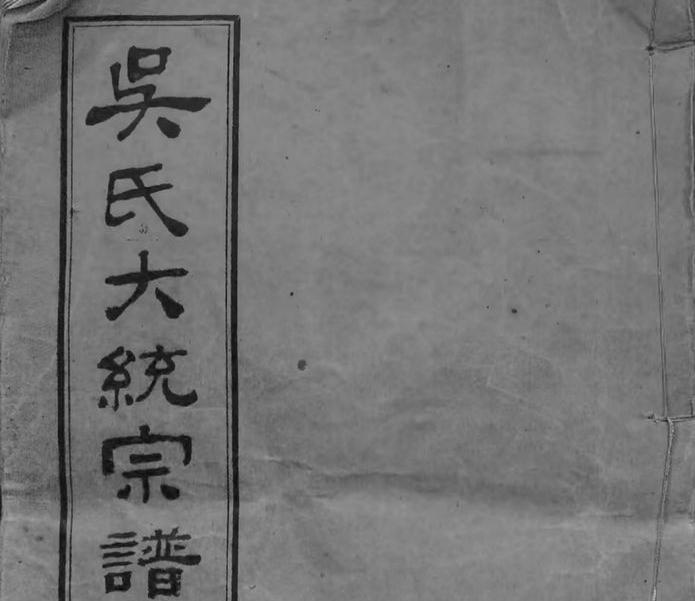 吳氏大統宗譜